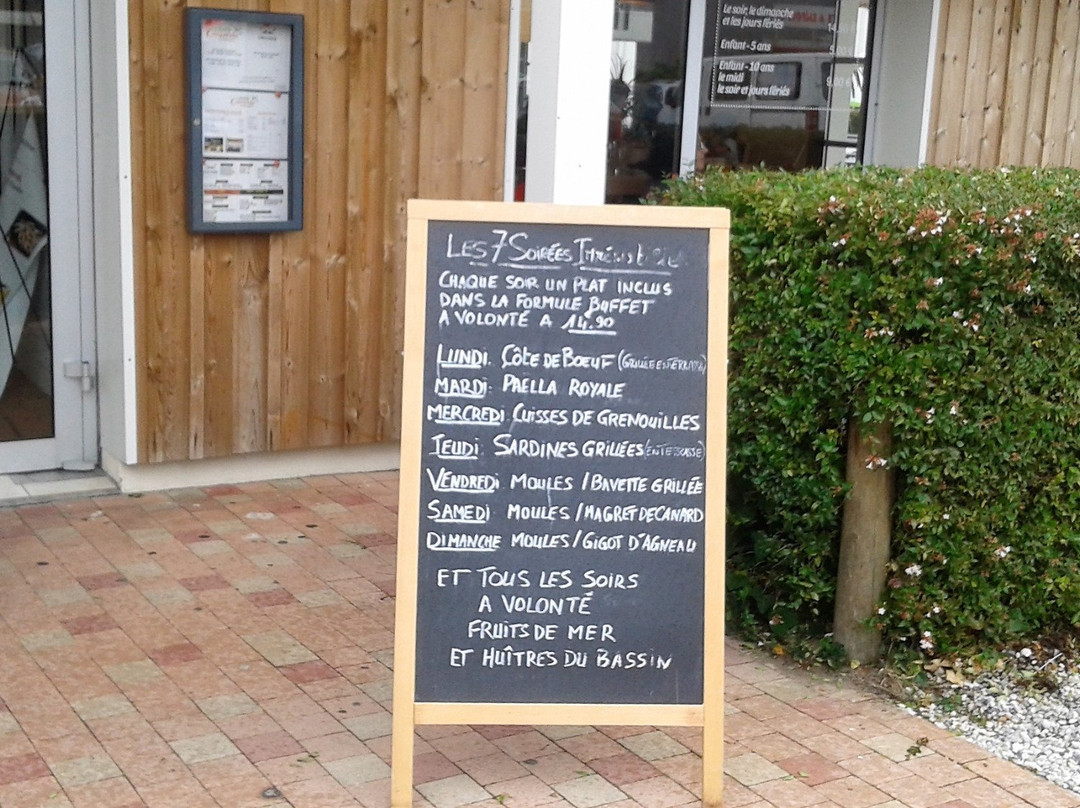 Le soir, le dimanche
et les jours fériés
Enfant - 5 ans
Enfant - 10 ans
le midi
le soir et jours fériés
LES 7 SOIRÉES
CHAQUE SOIR UN PLAT INCLUS
DANS LA FORMULE BUFFET
A VOLONTÉ A 14.90
LUNDI: CÔTE DE BOEUF
MARDI: PAELLA ROYALE
MERCREDI: CUISSES DE GRENOUILLES
JEUDI: SARDINES GRILLÉES
VENDREDI MOULES / BAVETTE GRILLÉE
SAMEDI MOULES / MAGRET DE CANARD
DIMANCHE MOULES / GIGOT D'AGNEAU
ET TOUS LES SOIRS
A VOLONTÉ
FRUITS DE MER
ET HUÎTRES DU BASSIN